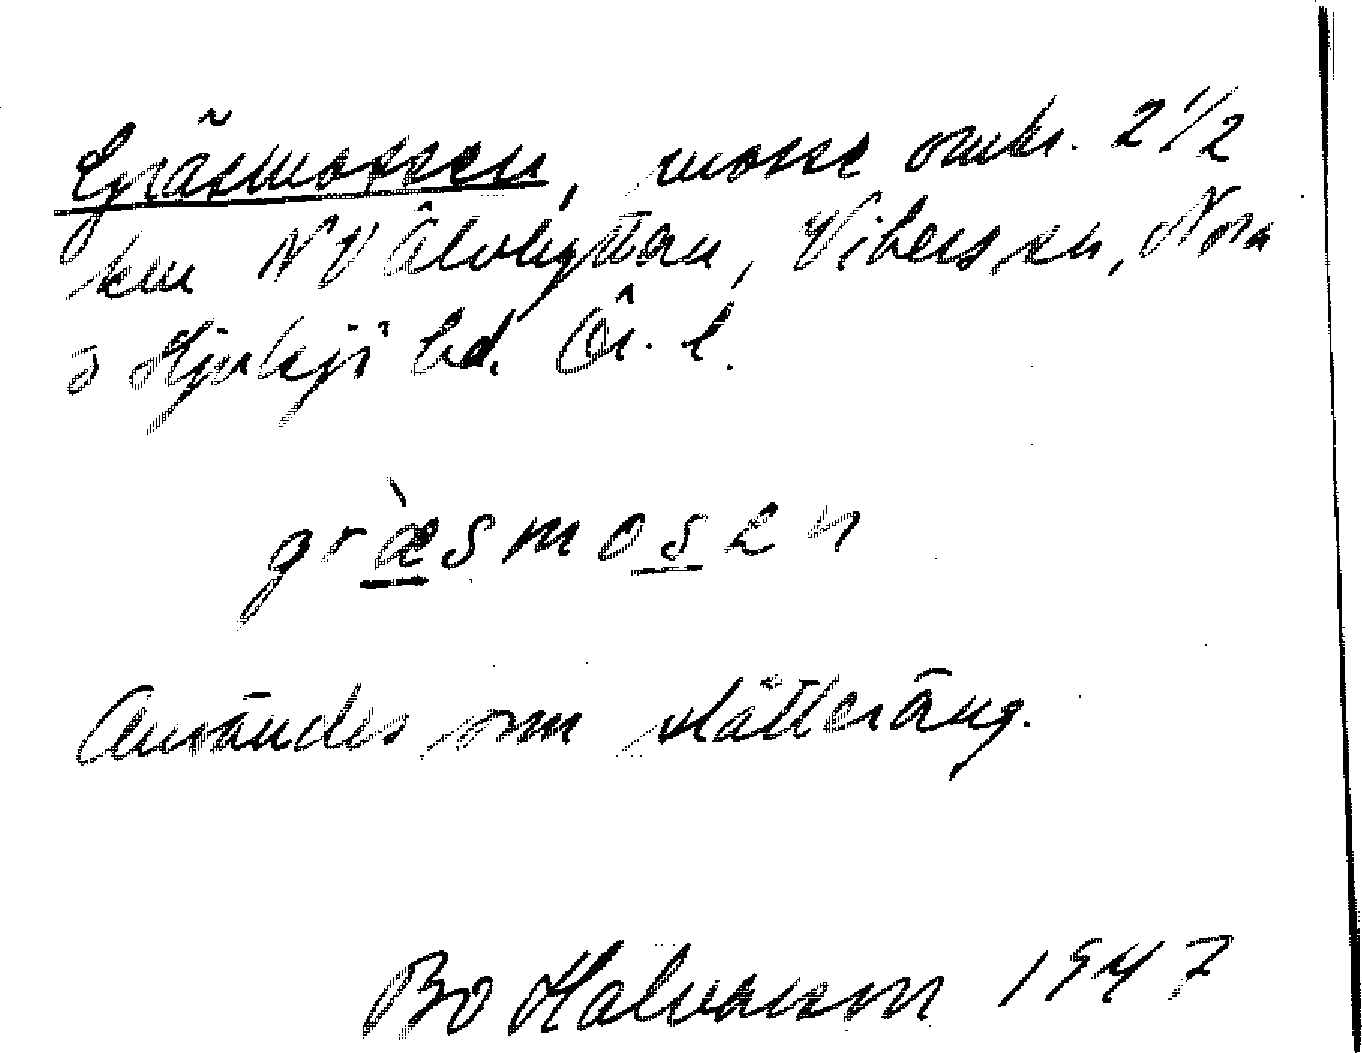 Gräsmossen, mosse omkr. 2 1/2
km NV Älvhyttan, Vikers sn, Nora
o Hjulsjö hd. Ör. l.
græsmosen
Användes som slåtteräng.
Bo Halvarsson 1947